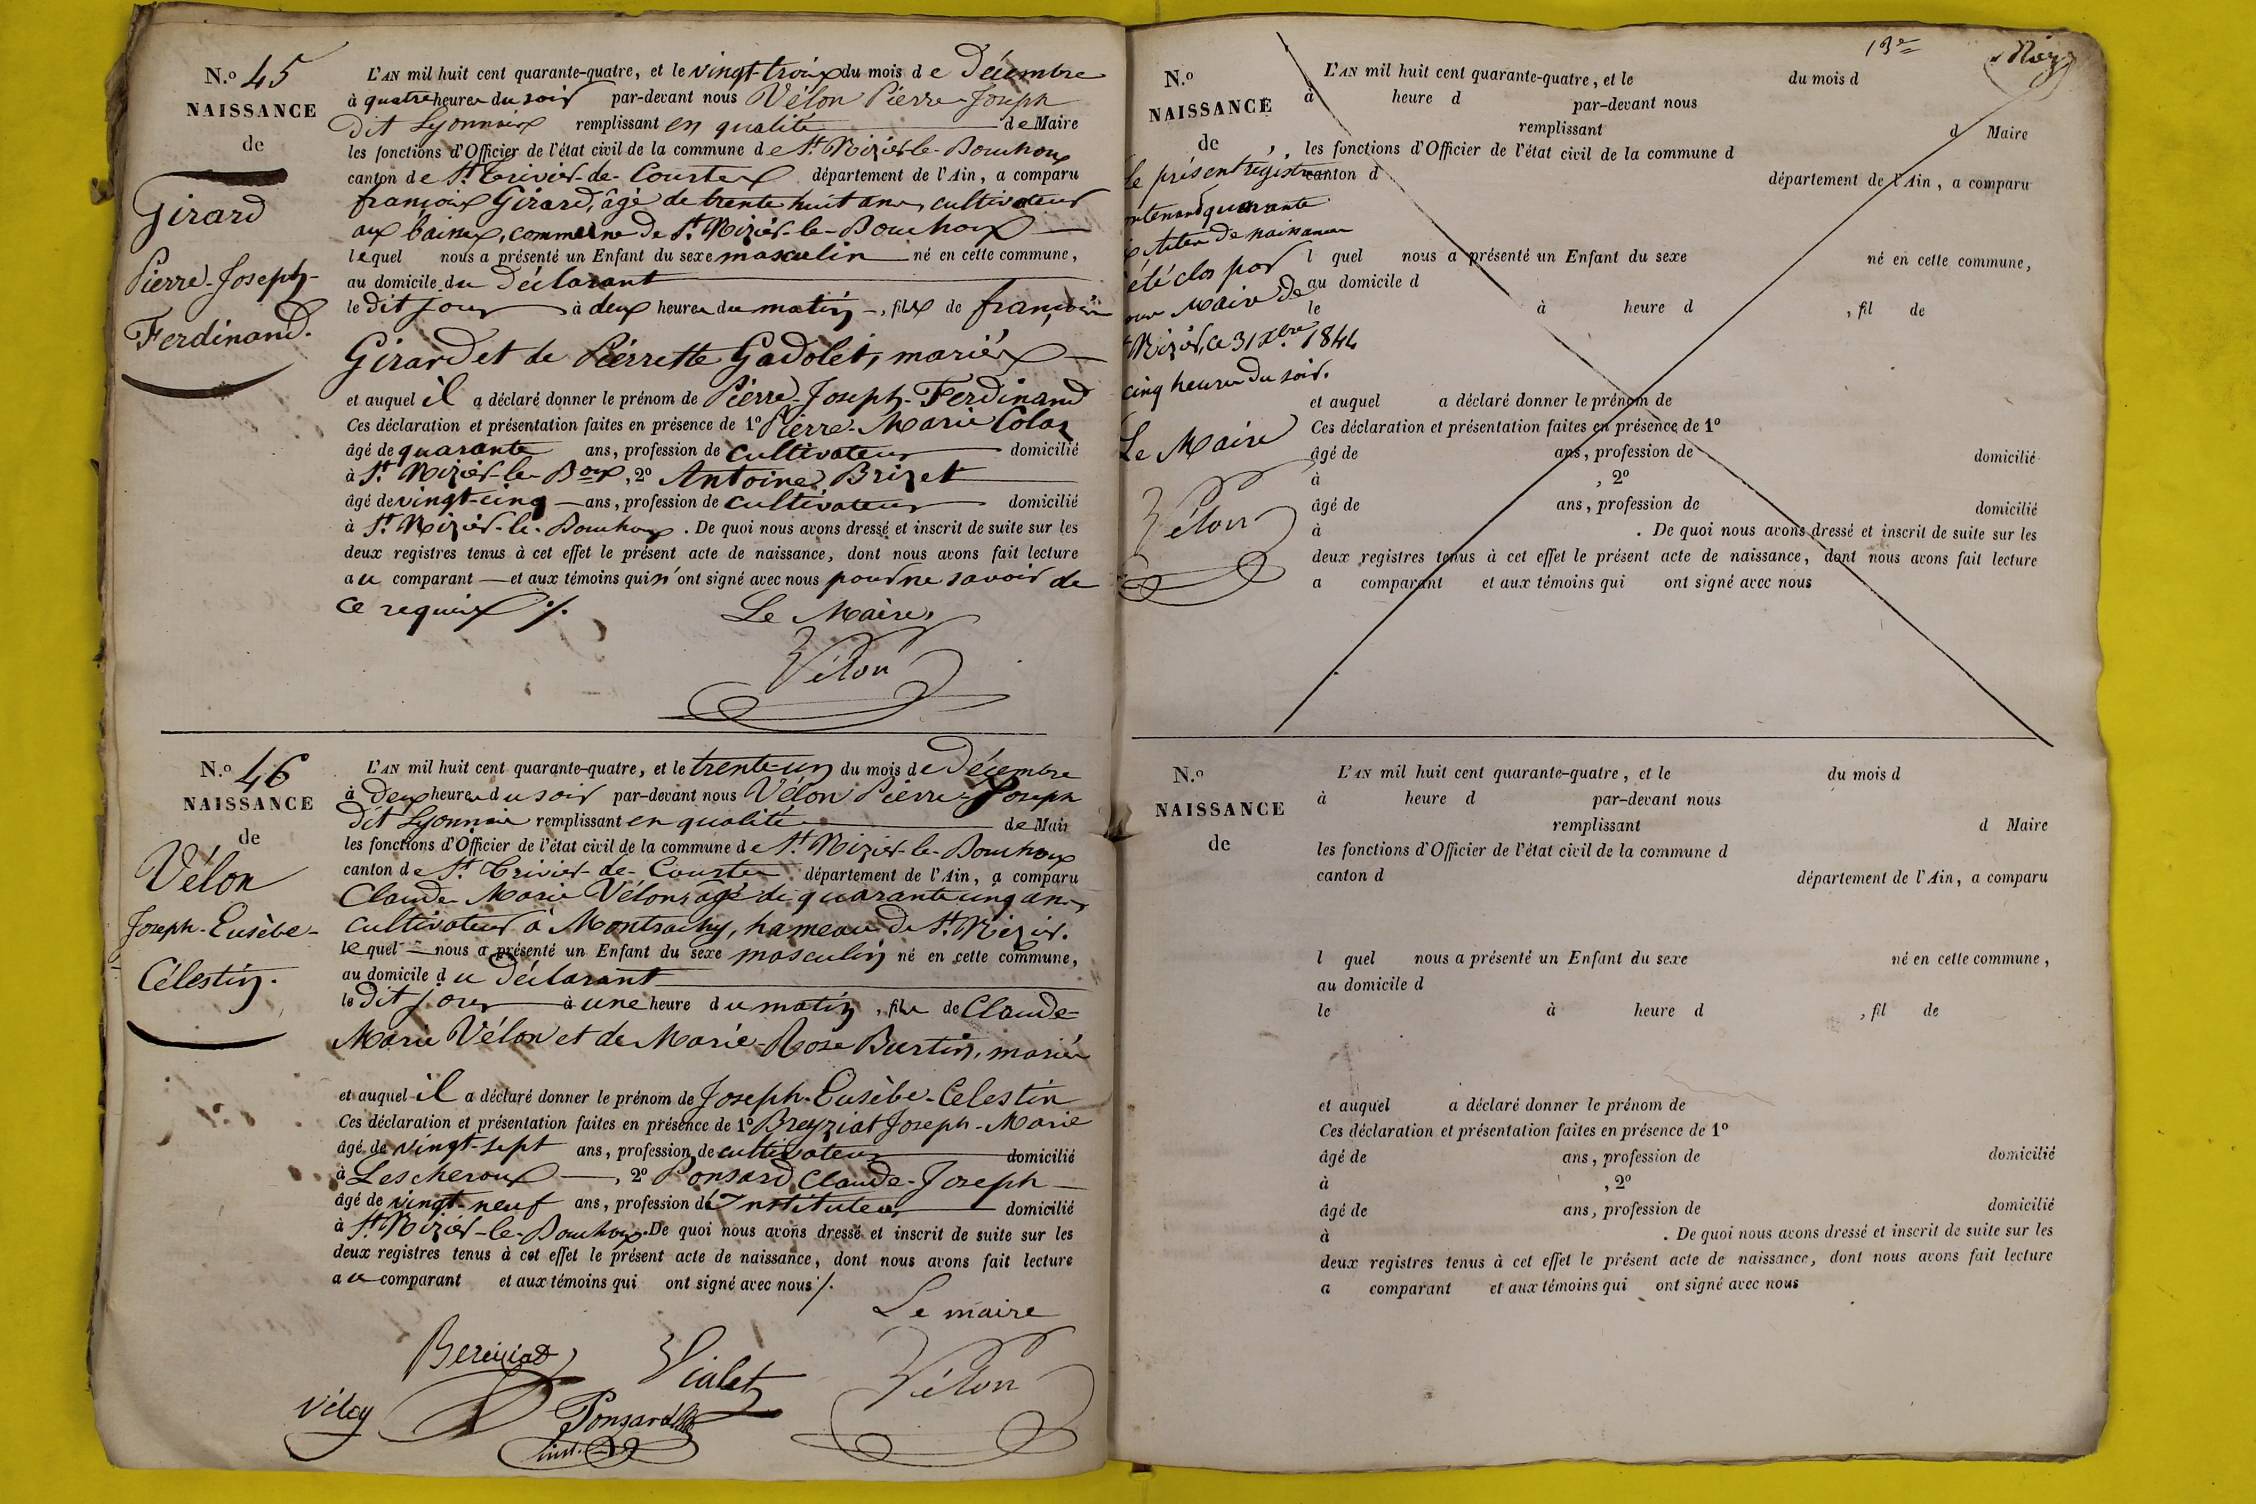 N.o 45
NAISSANCE
de
Girard
Pierre-Joseph-
Ferdinand.
L'AN mil huit cent quarante-quatre, et le vingt-trois du mois de Décembre
à quatre heures du soir par-devant nous Vélon Pierre-Joseph
dit Lyonnais remplissant en qualité de Maire
les fonctions d'Officier de l'état civil de la commune de St. Nizier-le-Bouchoux
canton de St. Trivier-de-Courtes département de l'Ain, a comparu
françois Girard, âgé de trente huit ans, cultivateur
aux baisses, commune de St. Nizier-le-Bouchoux
lequel nous a présenté un Enfant du sexe masculin né en cette commune,
au domicile du déclarant
le dit jour à deux heures du matin, fils de françois
Girard et de Pierrette Gadolet, mariés
et auquel il a déclaré donner le prénom de Pierre-Joseph-Ferdinand
Ces déclaration et présentation faites en présence de 1o Pierre-Marie Colas
âgé de quarante ans, profession de cultivateur domicilié
à St. Nizier-le-Boux, 2o Antoine Brizet
âgé de vingt-cinq ans, profession de cultivateur domicilié
à St. Nizier-le-Bouchoux. De quoi nous avons dressé et inscrit de suite sur les
deux registres tenus à cet effet le présent acte de naissance, dont nous avons fait lecture
au comparant et aux témoins qui n'ont signé avec nous pour ne savoir de
ce requis ./.
Le Maire,
Vélon
N.o 46
NAISSANCE
de
Vélon
Joseph-Eusèbe-
Célestin.
L'AN mil huit cent quarante-quatre, et le trente-un du mois de Décembre
à deux heures du soir par-devant nous Vélon Pierre-Joseph
dit Lyonnais remplissant en qualité de Maire
les fonctions d'Officier de l'état civil de la commune de St. Nizier-le-Bouchoux
canton de St. Trivier-de-Courtes département de l'Ain, a comparu
Claude Marie Vélon, âgé de quarante cinq ans
cultivateur à Montsachy, hameau de St. Nizier.
lequel nous a présenté un Enfant du sexe masculin né en cette commune,
au domicile du déclarant
le dit jour à une heure du matin, fils de Claude-
Marie Vélon et de Marie-Rose Burtin, mariés
et auquel il a déclaré donner le prénom de Joseph-Eusèbe-Célestin
Ces déclaration et présentation faites en présence de 1o Breyziat Joseph-Marie
âgé de vingt-sept ans, profession de cultivateur domicilié
à Lescheroux, 2o Ponsard Claude-Joseph
âgé de vingt-neuf ans, profession d'Instituteur domicilié
à St. Nizier-le-Bouchoux. De quoi nous avons dressé et inscrit de suite sur les
deux registres tenus à cet effet le présent acte de naissance, dont nous avons fait lecture
au comparant et aux témoins qui ont signé avec nous ./.
Le maire
Vialet
Vélon
Ponsard
inst.
13e
N.o
NAISSANCE
de
Le présent registre
contenant quarante
six actes de naissance
a été clos par
nous Maire de
St Nizier, ce 31 Xbre 1844
cinq heures du soir.
Le Maire
Vélon
L'AN mil huit cent quarante-quatre, et le du mois d
à heure d par-devant nous
remplissant d Maire
les fonctions d'Officier de l'état civil de la commune d
canton d département de l'Ain, a comparu
l quel nous a présenté un Enfant du sexe né en cette commune,
au domicile d
le à heure d , fil de
et auquel a déclaré donner le prénom de
Ces déclaration et présentation faites en présence de 1o
âgé de ans, profession de domicilié
à , 2o
âgé de ans, profession de domicilié
à . De quoi nous avons dressé et inscrit de suite sur les
deux registres tenus à cet effet le présent acte de naissance, dont nous avons fait lecture
a comparant et aux témoins qui ont signé avec nous
N.o
NAISSANCE
de
L'AN mil huit cent quarante-quatre, et le du mois d
à heure d par-devant nous
remplissant d Maire
les fonctions d'Officier de l'état civil de la commune d
canton d département de l'Ain, a comparu
l quel nous a présenté un Enfant du sexe né en cette commune,
au domicile d
le à heure d , fil de
et auquel a déclaré donner le prénom de
Ces déclaration et présentation faites en présence de 1o
âgé de ans, profession de domicilié
à , 2o
âgé de ans, profession de domicilié
à . De quoi nous avons dressé et inscrit de suite sur les
deux registres tenus à cet effet le présent acte de naissance, dont nous avons fait lecture
a comparant et aux témoins qui ont signé avec nous